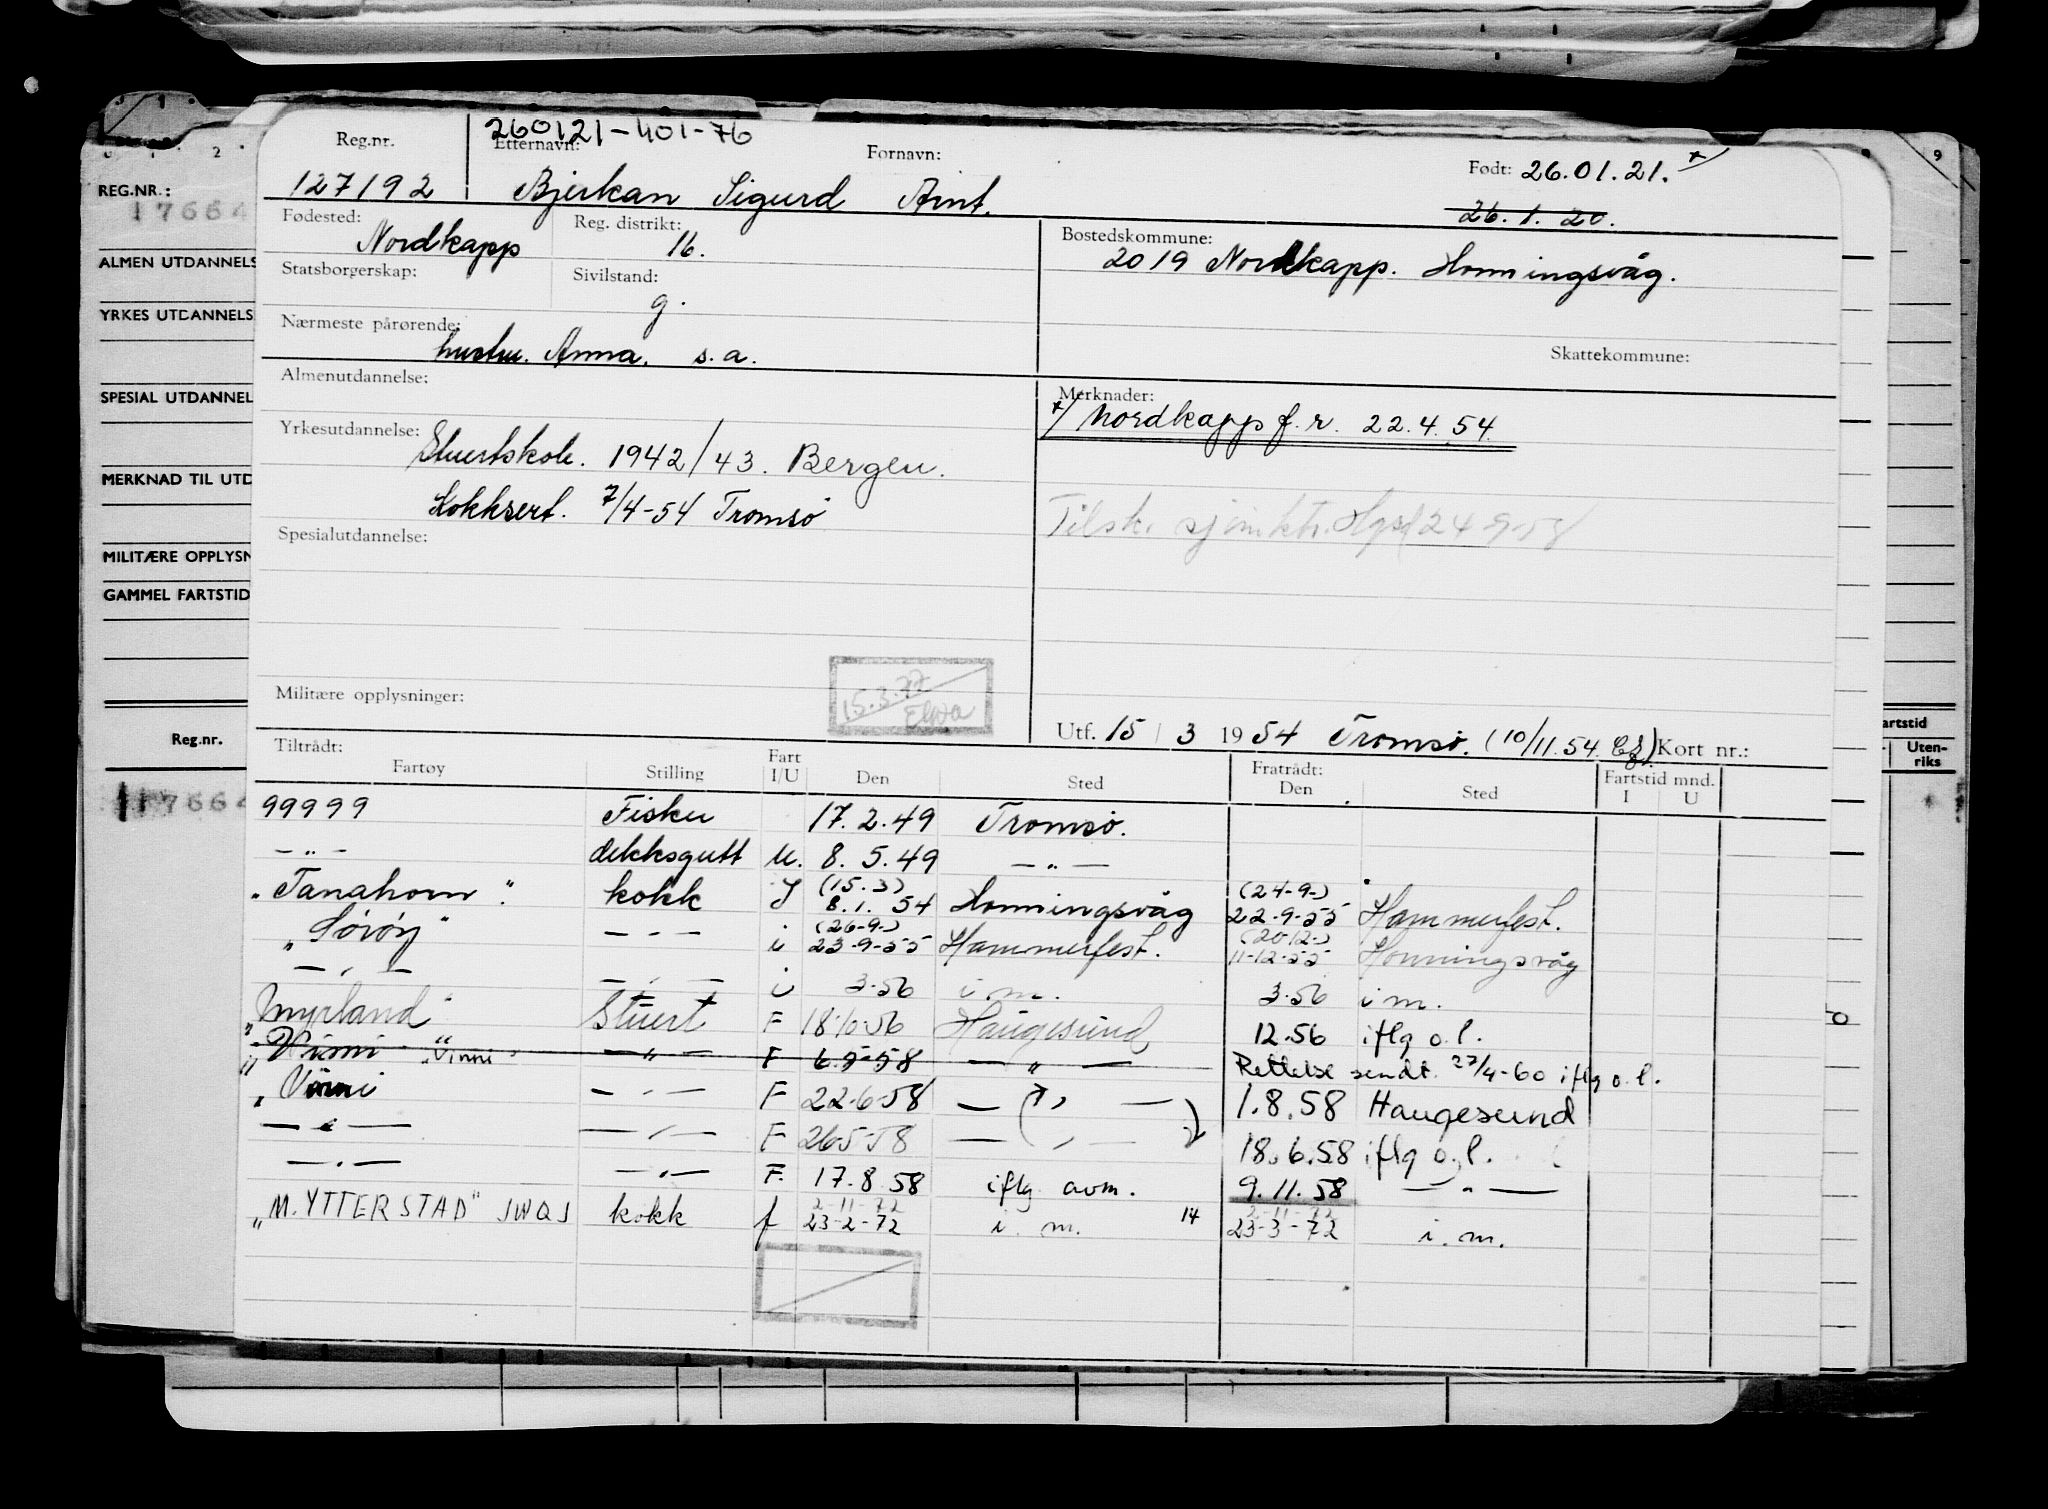 260121-401-76
Reg.nr. Etternavn: Fornavn: Født: 26.01.21. x/
127192 Bjerkan Sigurd Arnt. 26.1.20.
Fødested: Nordkapp Reg. distrikt: 16. Bostedskommune: 2019 Nordkapp. Honningsvåg.
Statsborgerskap: Sivilstand: g.
Nærmeste pårørende: hustru. Anna. s.a. Skattekommune:
Almenutdannelse: Merknader:
x/ Nordkapp f.r. 22.4.54.
Yrkesutdannelse: Stuertskole. 1942/43. Bergen.
Kokksert. 7/4-54 Tromsø
Tilsk. sjømktr. Hgsd 24-9-58
Spesialutdannelse:
15.3.77
Militære opplysninger:
Utf. 15 / 3 1954 Tromsø. (10/11.54 Kort nr.:
Tiltrådt: Fart Fratrådt: Fartstid mnd.
Fartøy Stilling I/U Den Sted Den Sted I U
99999 Fisker 17.2.49 Tromsø.
— " — dekksgutt U. 8.5.49 — " —
(15.3) (24-9-)
"Tanahorn". kokk I 8.1.54 Honningsvåg 22-9-55 Hammerfest.
(26-9-) (20-12-)
"Sørøy" — " — i 23-9-55 Hammerfest. 11-12-55 Honningsvåg
— " — — " — i 3.56 i m. 3.56 i m.
"Myrland" Stuert F 18/10-56 Haugesund 12.56 iflg o.l.
"Vinni" "Vinni" — " — F 6.5-58 — " — Rettelse sendt. 27/4-60 iflg o.l.
"Vinni — " — F 22-6-58 — " — 1.8.58 Haugesund
— " — — " — F 26-5-58 — " — 18.6.58 iflg o.l.
— " — — " — F. 17.8.58 iflg avm. 9.11.58 — " —
2-11-72 2-11-72
"M. YTTERSTAD" JWQJ kokk f 23-2-72 i. m. 14 23-3-72 i. m.
REG.NR.:
17664
ALMEN UTDANNELS
YRKES UTDANNELS
SPESIAL UTDANNEL
MERKNAD TIL UTD
MILITÆRE OPPLYSN
GAMMEL FARTSTID
Reg.nr.
17664
artstid
Uten-
riks
9